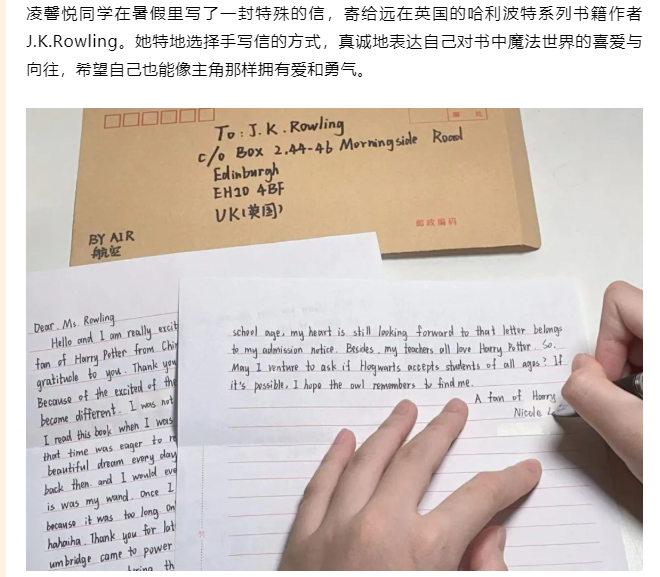 凌馨悦同学在暑假里写了一封特殊的信，寄给远在英国的哈利波特系列书籍作者
J.K.Rowling。她特地选择手写信的方式，真诚地表达自己对书中魔法世界的喜爱与
向往，希望自己也能像主角那样拥有爱和勇气。
To : J. K. Rowling
c/o Box 2,44-46 Morningside Road
Edinburgh
EH10 4BF
UK(英国)
邮政编码
BY AIR
航空
Dear. Ms. Rowling
Hello and I am really excit
fan of Harry Potter from Chi
gratitule to you. Thank you
Because of the excited of the
become different. I was not
I read this book when I was
that time was eager to re
beautiful dream every day
back then. and I would eve
is was my wand. Once I
because it was too long on
hahaiha. Thank you for lot
umbridge came to power
th
school age, my heart is still looking forward to that letter belongs
to my admission notice. Besides, my teachers all love Harry Potter. So.
May I venture to ask if Hogwarts accepts students of all ages? If
it's possible, I hope the owl remembers to find me.
A fan of Harry
Nicole L